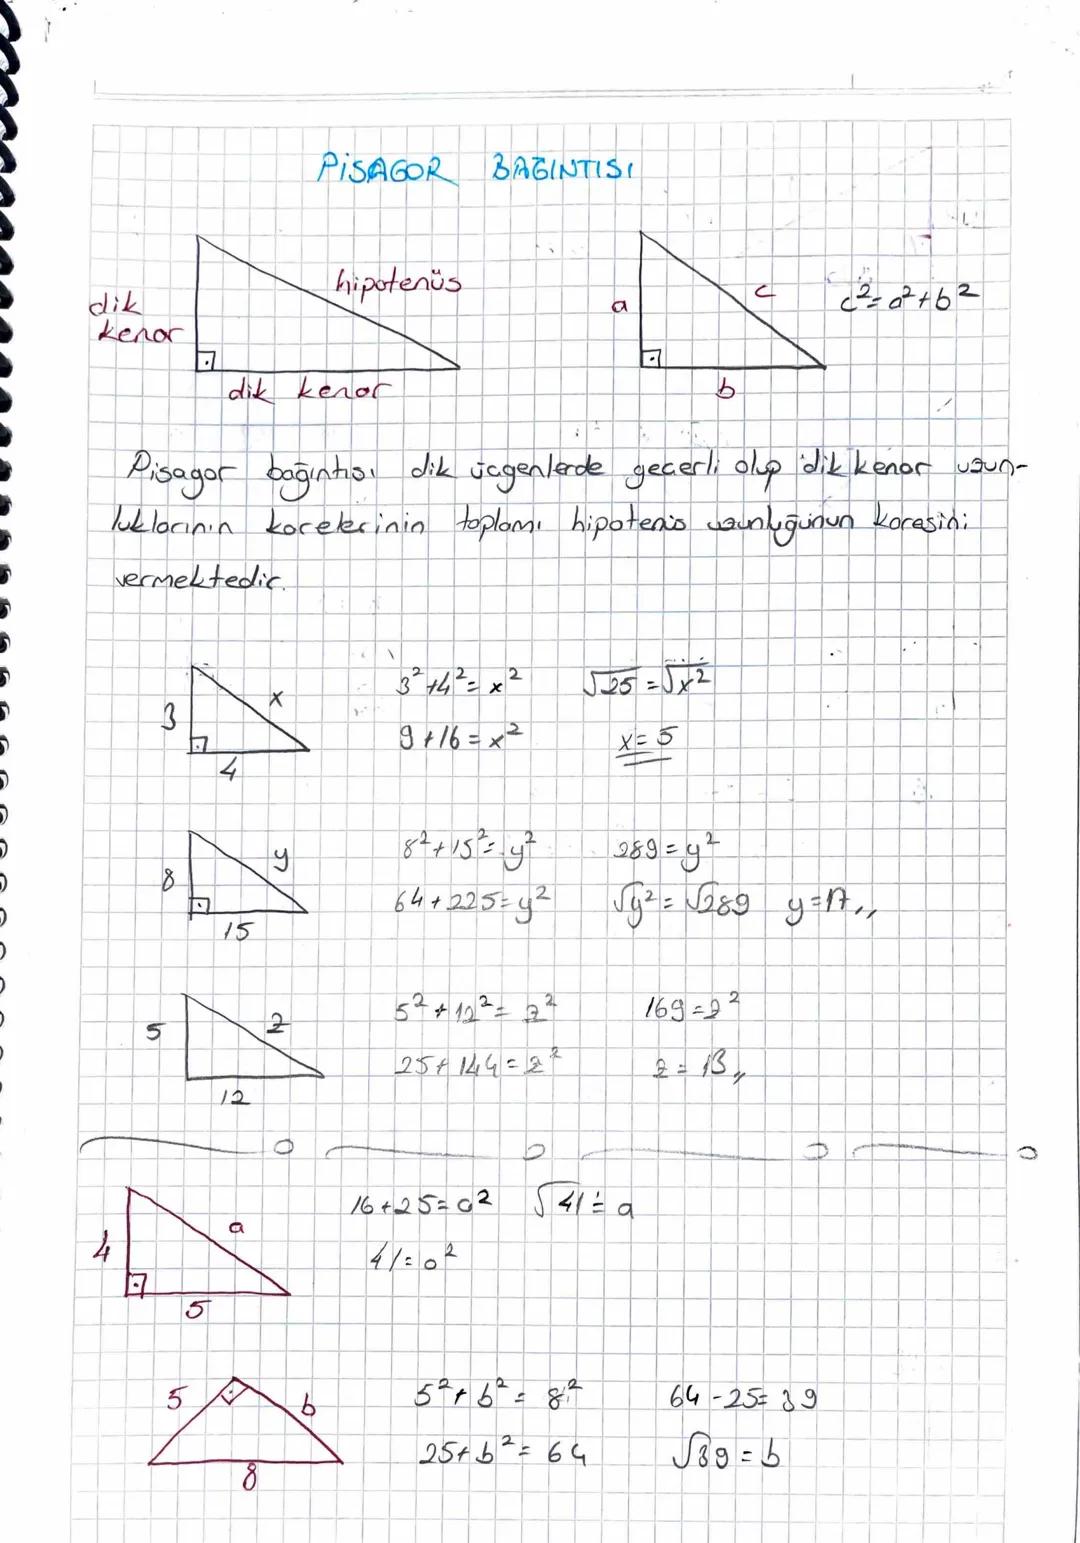 PİSAGOR BAĞINTISI
dik
kenar
hipotenüs
dik kenar
a
c
b
c²=a²+b²
Pisagor bağıntısı dik üçgenlerde geçerli olup dik kenar uzun-
luklarının karelerinin toplamı hipotenüs uzunluğunun karesini
vermektedir.
3
x
4
3²+4²=x² √25=√x²
9+16=x² x=5
8
y
15
8²+15²=y² 289=y²
64+225=y² √y²=√289 y=17,,
5
z
12
5²+12²=z² 169=z²
25+144=z² z=13,,
4
a
5
16+25=a² √41=a
41=a²
5
b
8
5²+b²=8² 64-25=39
25+b²=64 √39=b